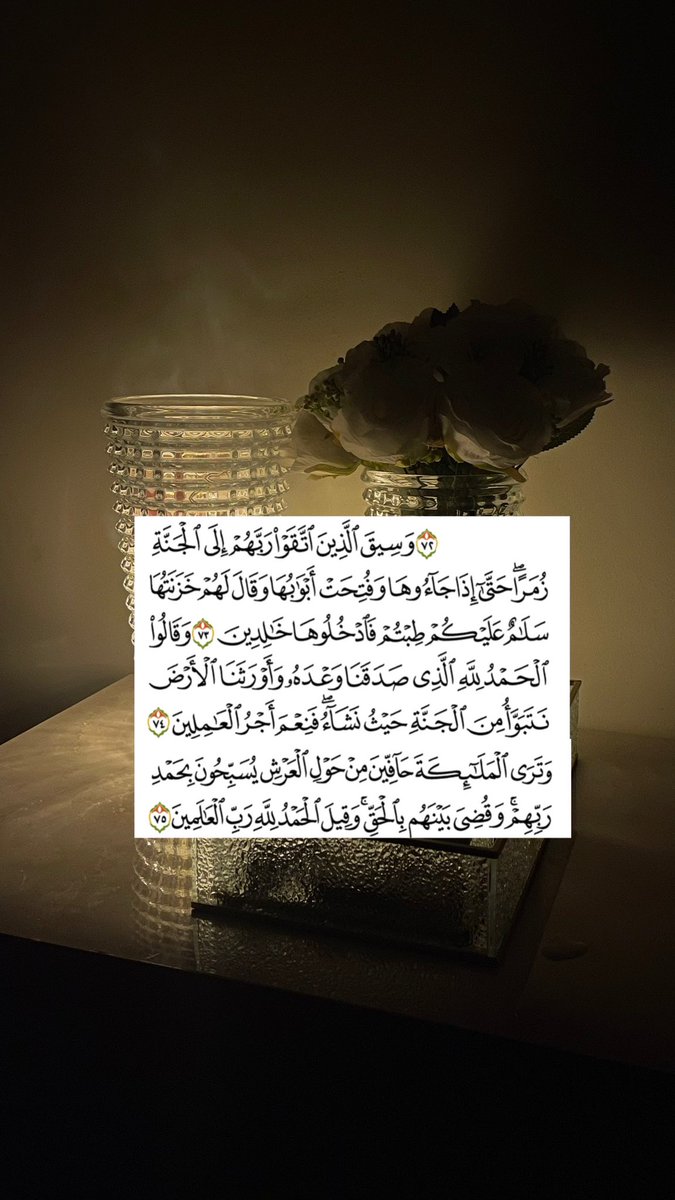 ٧٢ وَسِيقَ ٱلَّذِينَ ٱتَّقَوۡاْ رَبَّهُمۡ إِلَى ٱلۡجَنَّةِ
زُمَرًاۖ حَتَّىٰٓ إِذَا جَآءُوهَا وَفُتِحَتۡ أَبۡوَٰبُهَا وَقَالَ لَهُمۡ خَزَنَتُهَا
سَلَٰمٌ عَلَيۡكُمۡ طِبۡتُمۡ فَٱدۡخُلُوهَا خَٰلِدِينَ ٧٣ وَقَالُواْ
ٱلۡحَمۡدُ لِلَّهِ ٱلَّذِى صَدَقَنَا وَعۡدَهُۥ وَأَوۡرَثَنَا ٱلۡأَرۡضَ
نَتَبَوَّأُ مِنَ ٱلۡجَنَّةِ حَيۡثُ نَشَآءُۖ فَنِعۡمَ أَجۡرُ ٱلۡعَٰمِلِينَ ٧٤
وَتَرَى ٱلۡمَلَٰٓئِكَةَ حَآفِّينَ مِنۡ حَوۡلِ ٱلۡعَرۡشِ يُسَبِّحُونَ بِحَمۡدِ
رَبِّهِمۡۚ وَقُضِىَ بَيۡنَهُم بِٱلۡحَقِّۚ وَقِيلَ ٱلۡحَمۡدُ لِلَّهِ رَبِّ ٱلۡعَٰلَمِينَ ٧٥